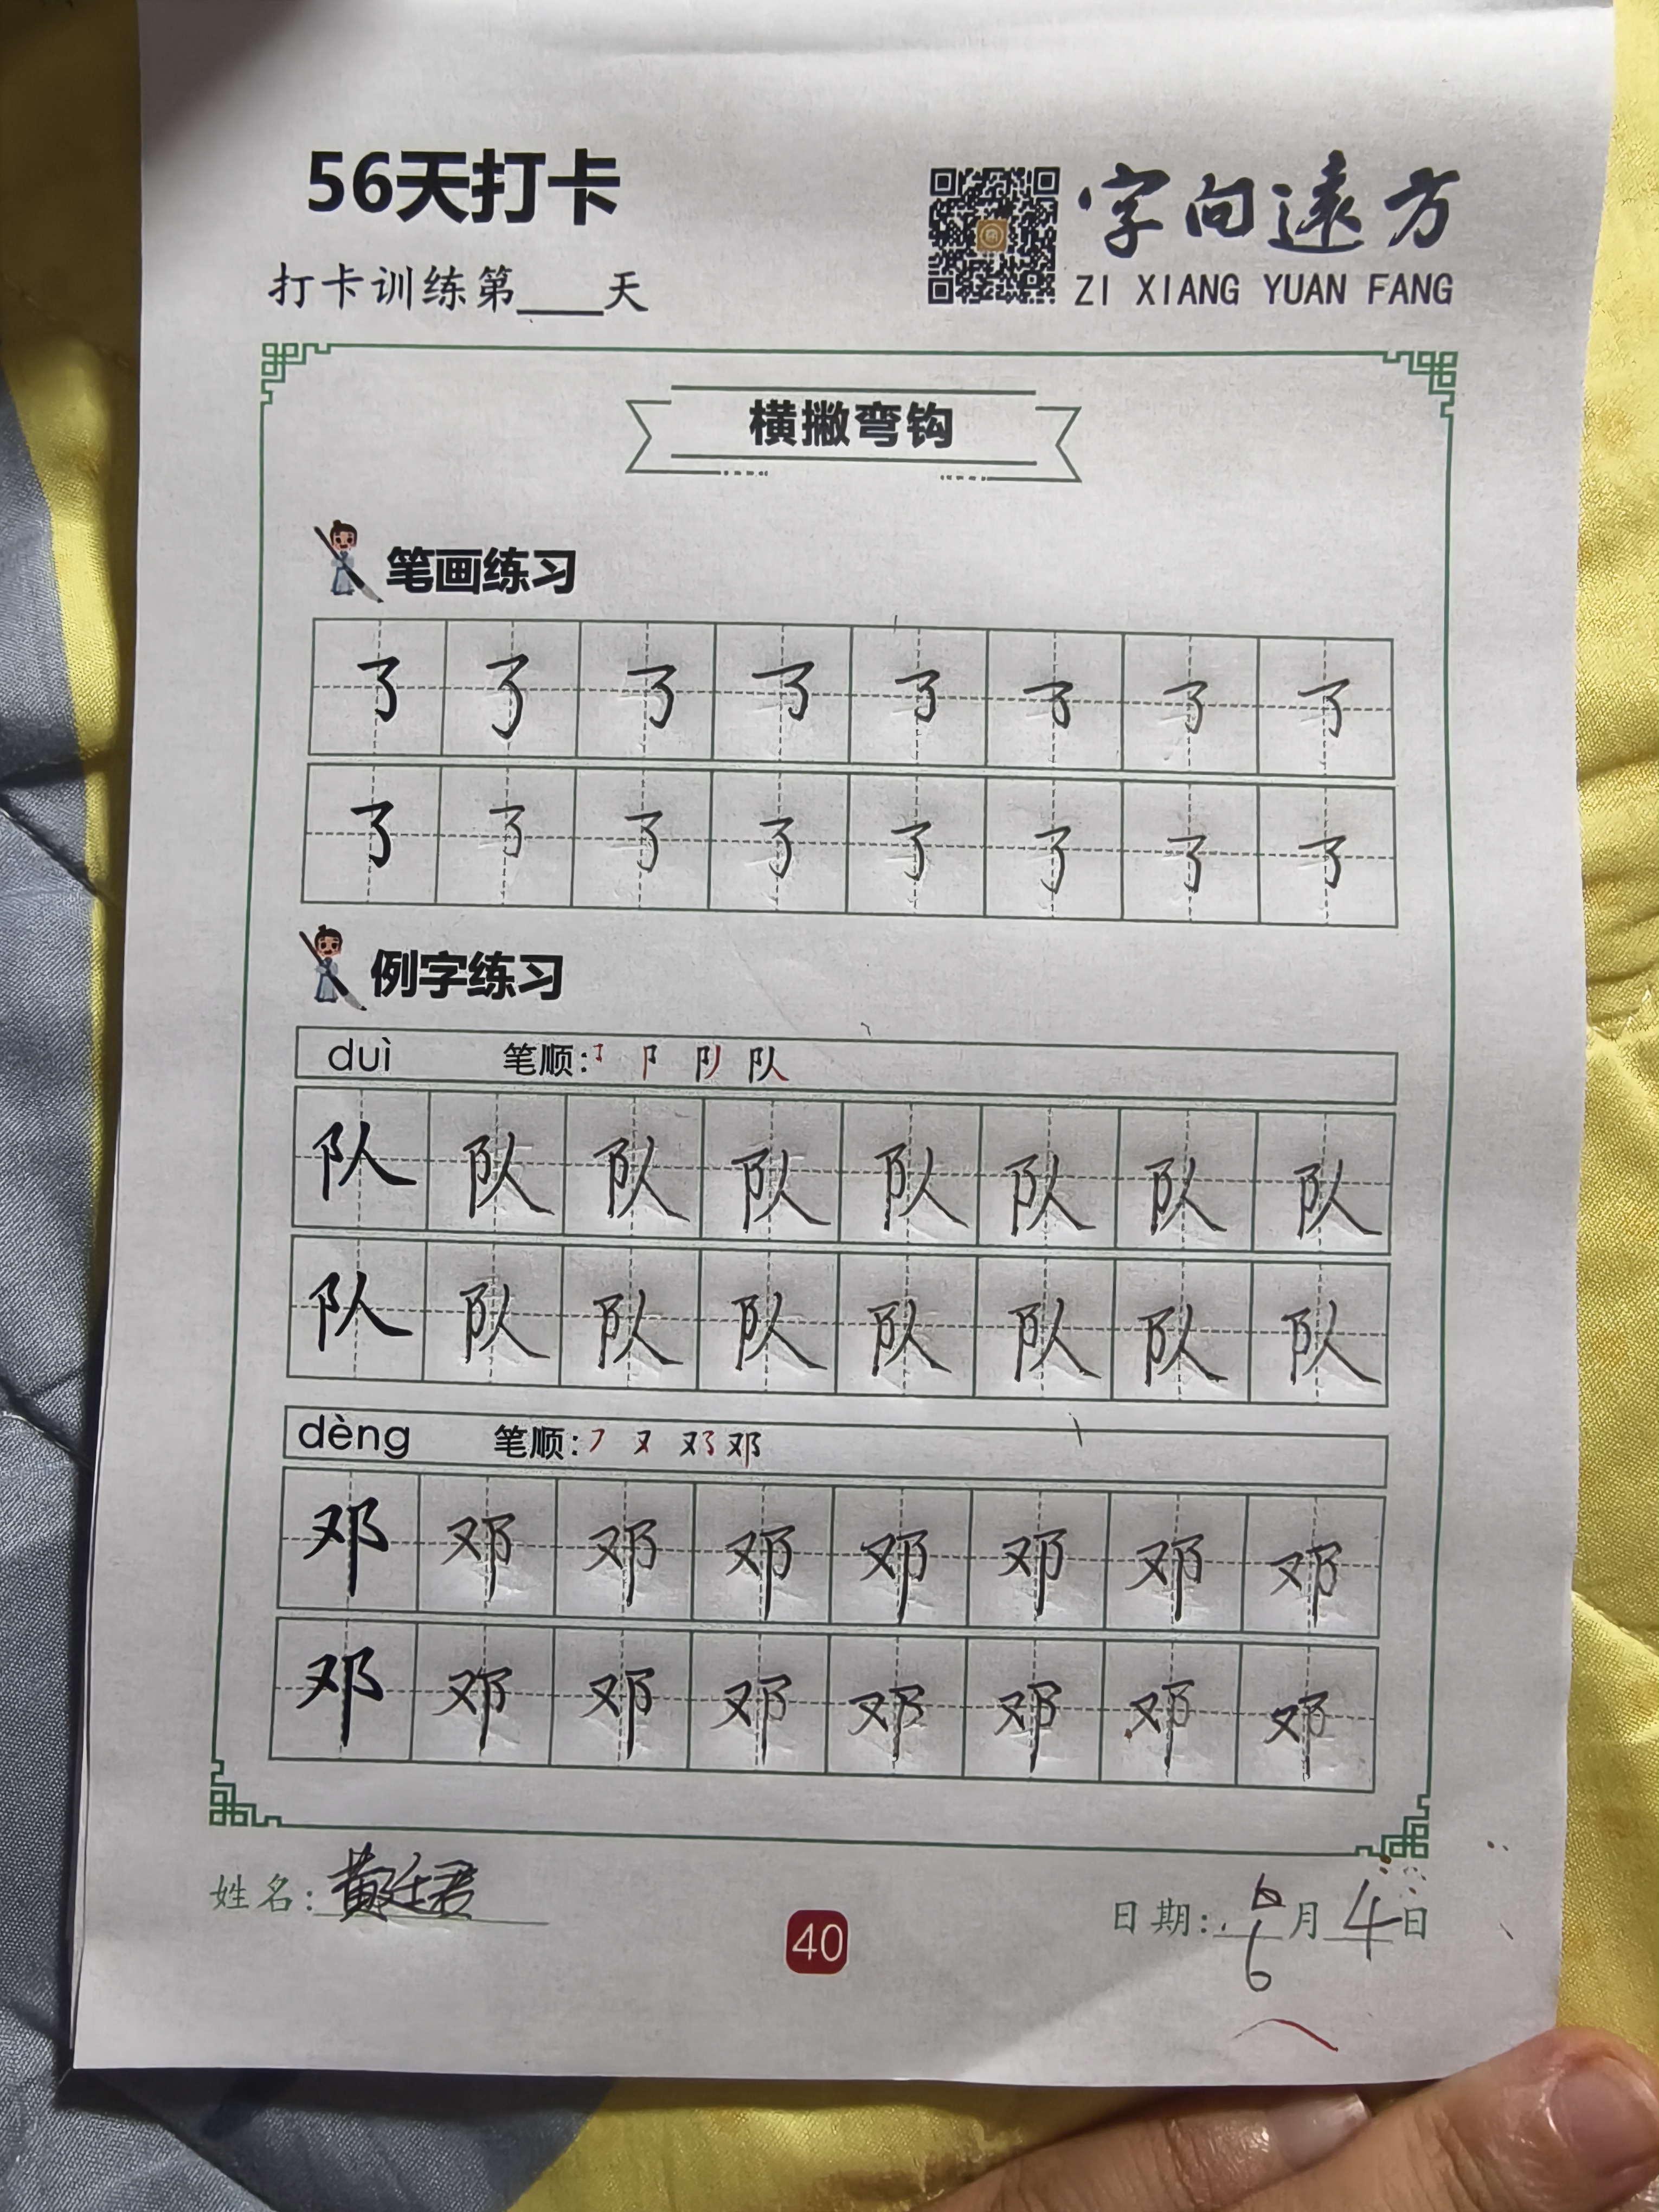 56天打卡
字向遠方
打卡训练第____天
ZI XIANG YUAN FANG
横撇弯钩
笔画练习
例字练习
duì 笔顺: 队
队 队 队 队 队 队 队 队
队 队 队 队 队 队 队 队
dèng 笔顺: 又 邓
邓 邓 邓 邓 邓 邓 邓 邓
邓 邓 邓 邓 邓 邓 邓 邓
姓名: 黄廷君
日期: 6月4日
6
40